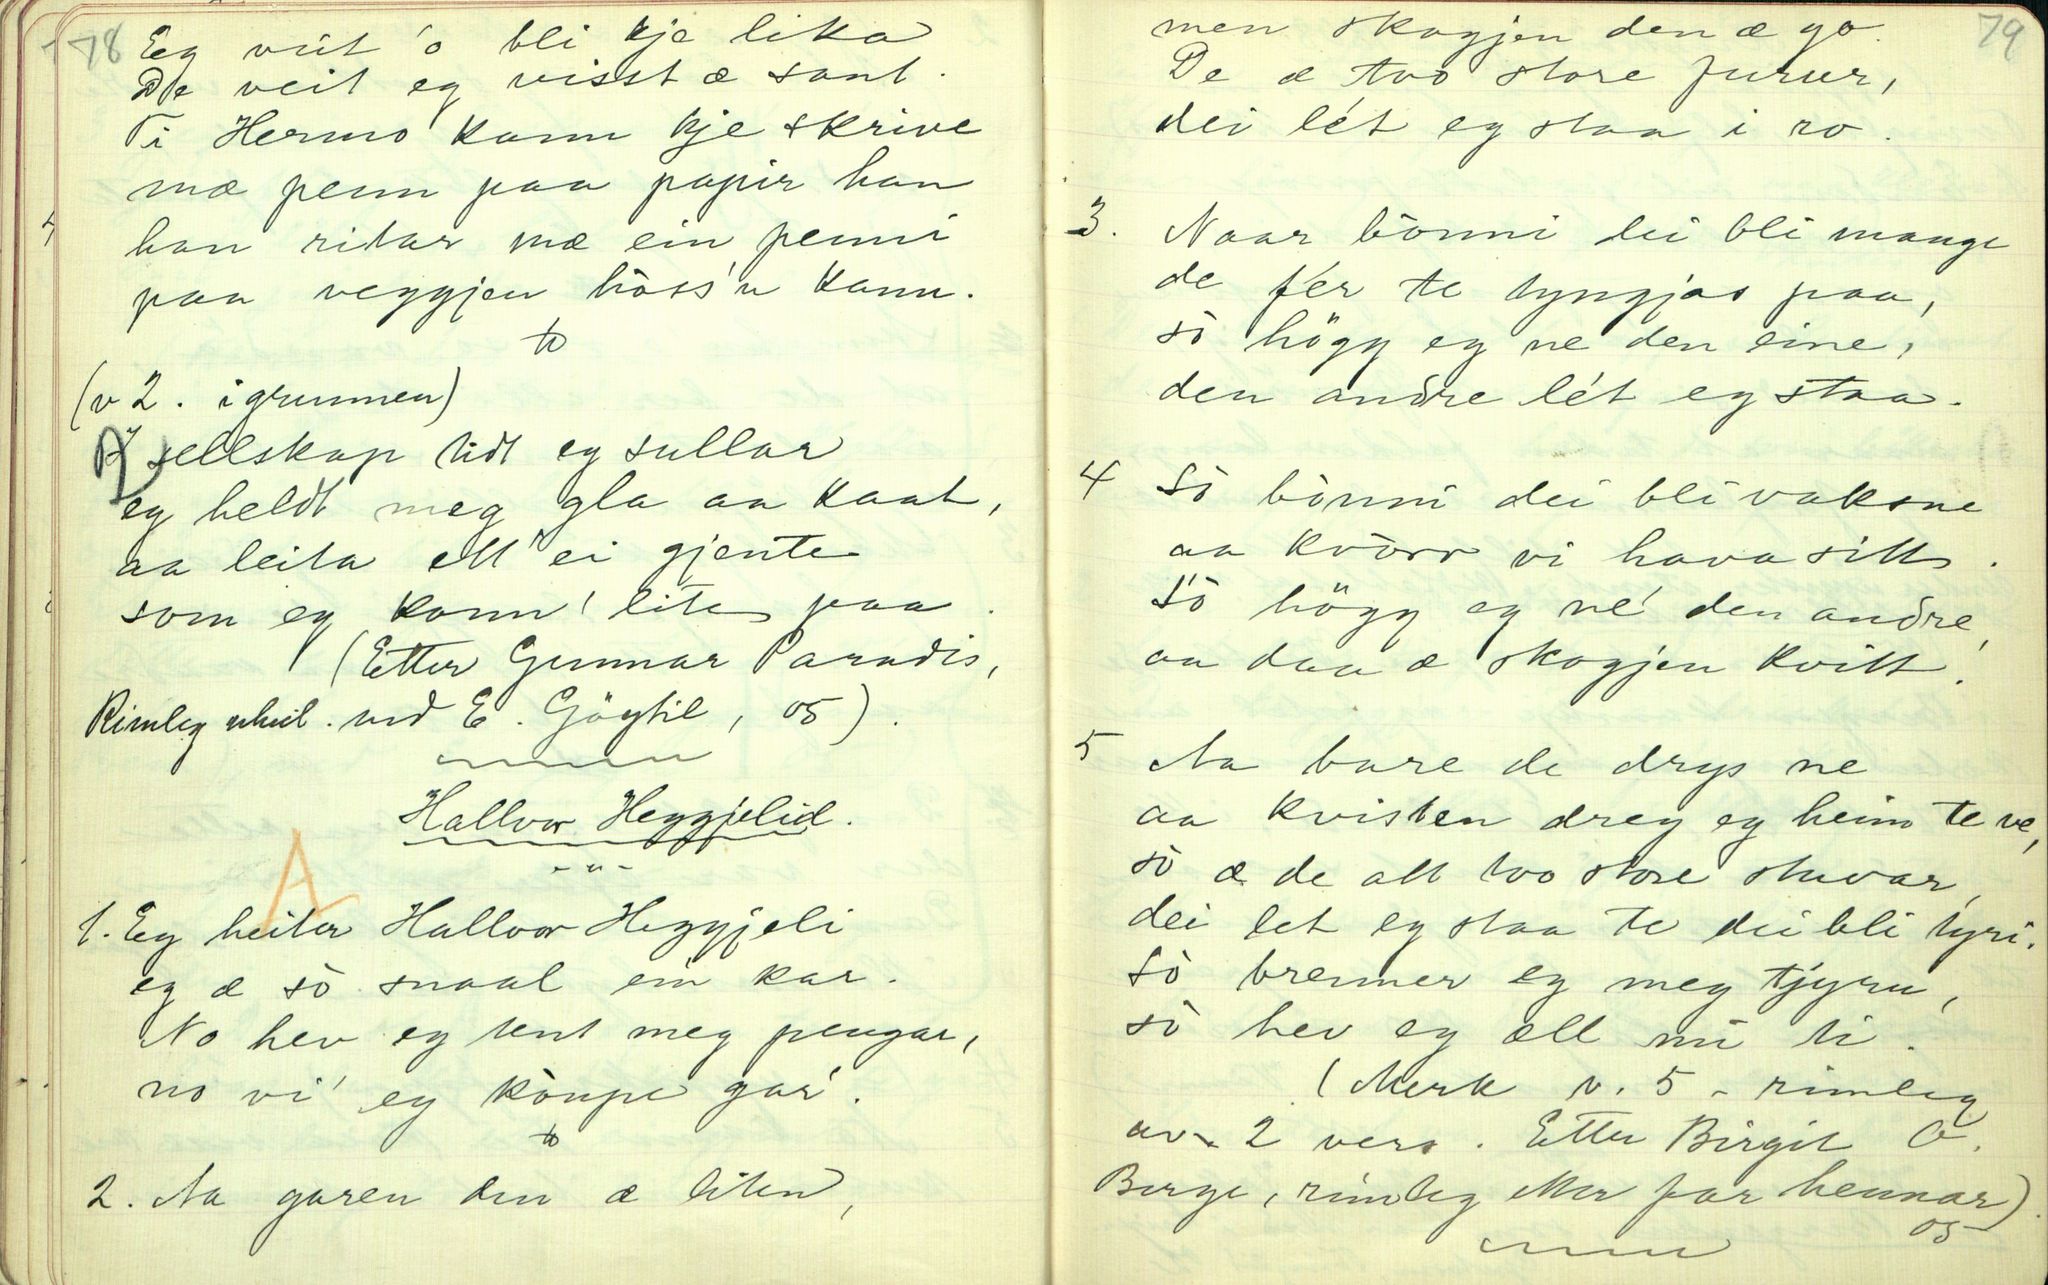 78
Eg veit o bli kje lika
De veit eg visst æ sant.
Ti Hermo kann kje skrive
mæ penn paa papir han
han ritar mæ ein penni
paa veggjen hòss'n kann.
(v 2. i grunnen)
I sellskap tidt eg sullar
eg heldt meg gla aa kaat,
aa leita ett ei gjente
som eg kann' lite paa.
(Etter Gunnar Paradis,
Rimleg uheil. ved E. Göytil, 05).
Hallvor Heggjelid.
- " -
A
1. Eg heiter Hallvor Heggjeli
eg æ sò snaal ein kar.
No hev eg tent meg pengar,
no vi' eg kòupe gar'.
2. Aa garen den æ liten,
79
men skogjen den æ go.
De æ tvo store furur,
dei lét eg staa i ro.
3. Naar bònni dei bli mange
de fér te tyngjas paa,
sò högg eg ne den eine,
den andre lét eg staa.
4 Sò bònni dei bli vaksne
aa kvòrr vi hava sitt.
Sò högg eg né den andre,
aa daa æ skogjen kvitt!
5 Aa bare de drys ne
aa kvisten dreg eg heim te ve,
sò æ de att tvo store stuvar,
dei let eg staa te dei bli tyri.
Sò brenner eg meg tjyru,
sò hev eg all mi ti.
(Merk v. 5 - rimleg
av 2 vers. Etter Birgit O.
Berge, rimleg etter far hennar).
05